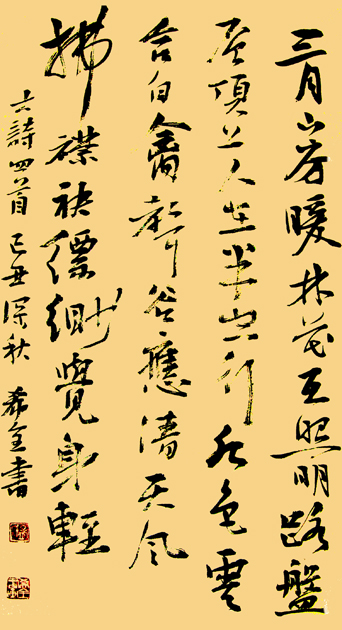 三月山暖林花互照明路盤
層頂上人在半空行水色雲
含白禽聲谷應清天風
拂襟袂縹緲覺身輕
詩四首己丑深秋希全書